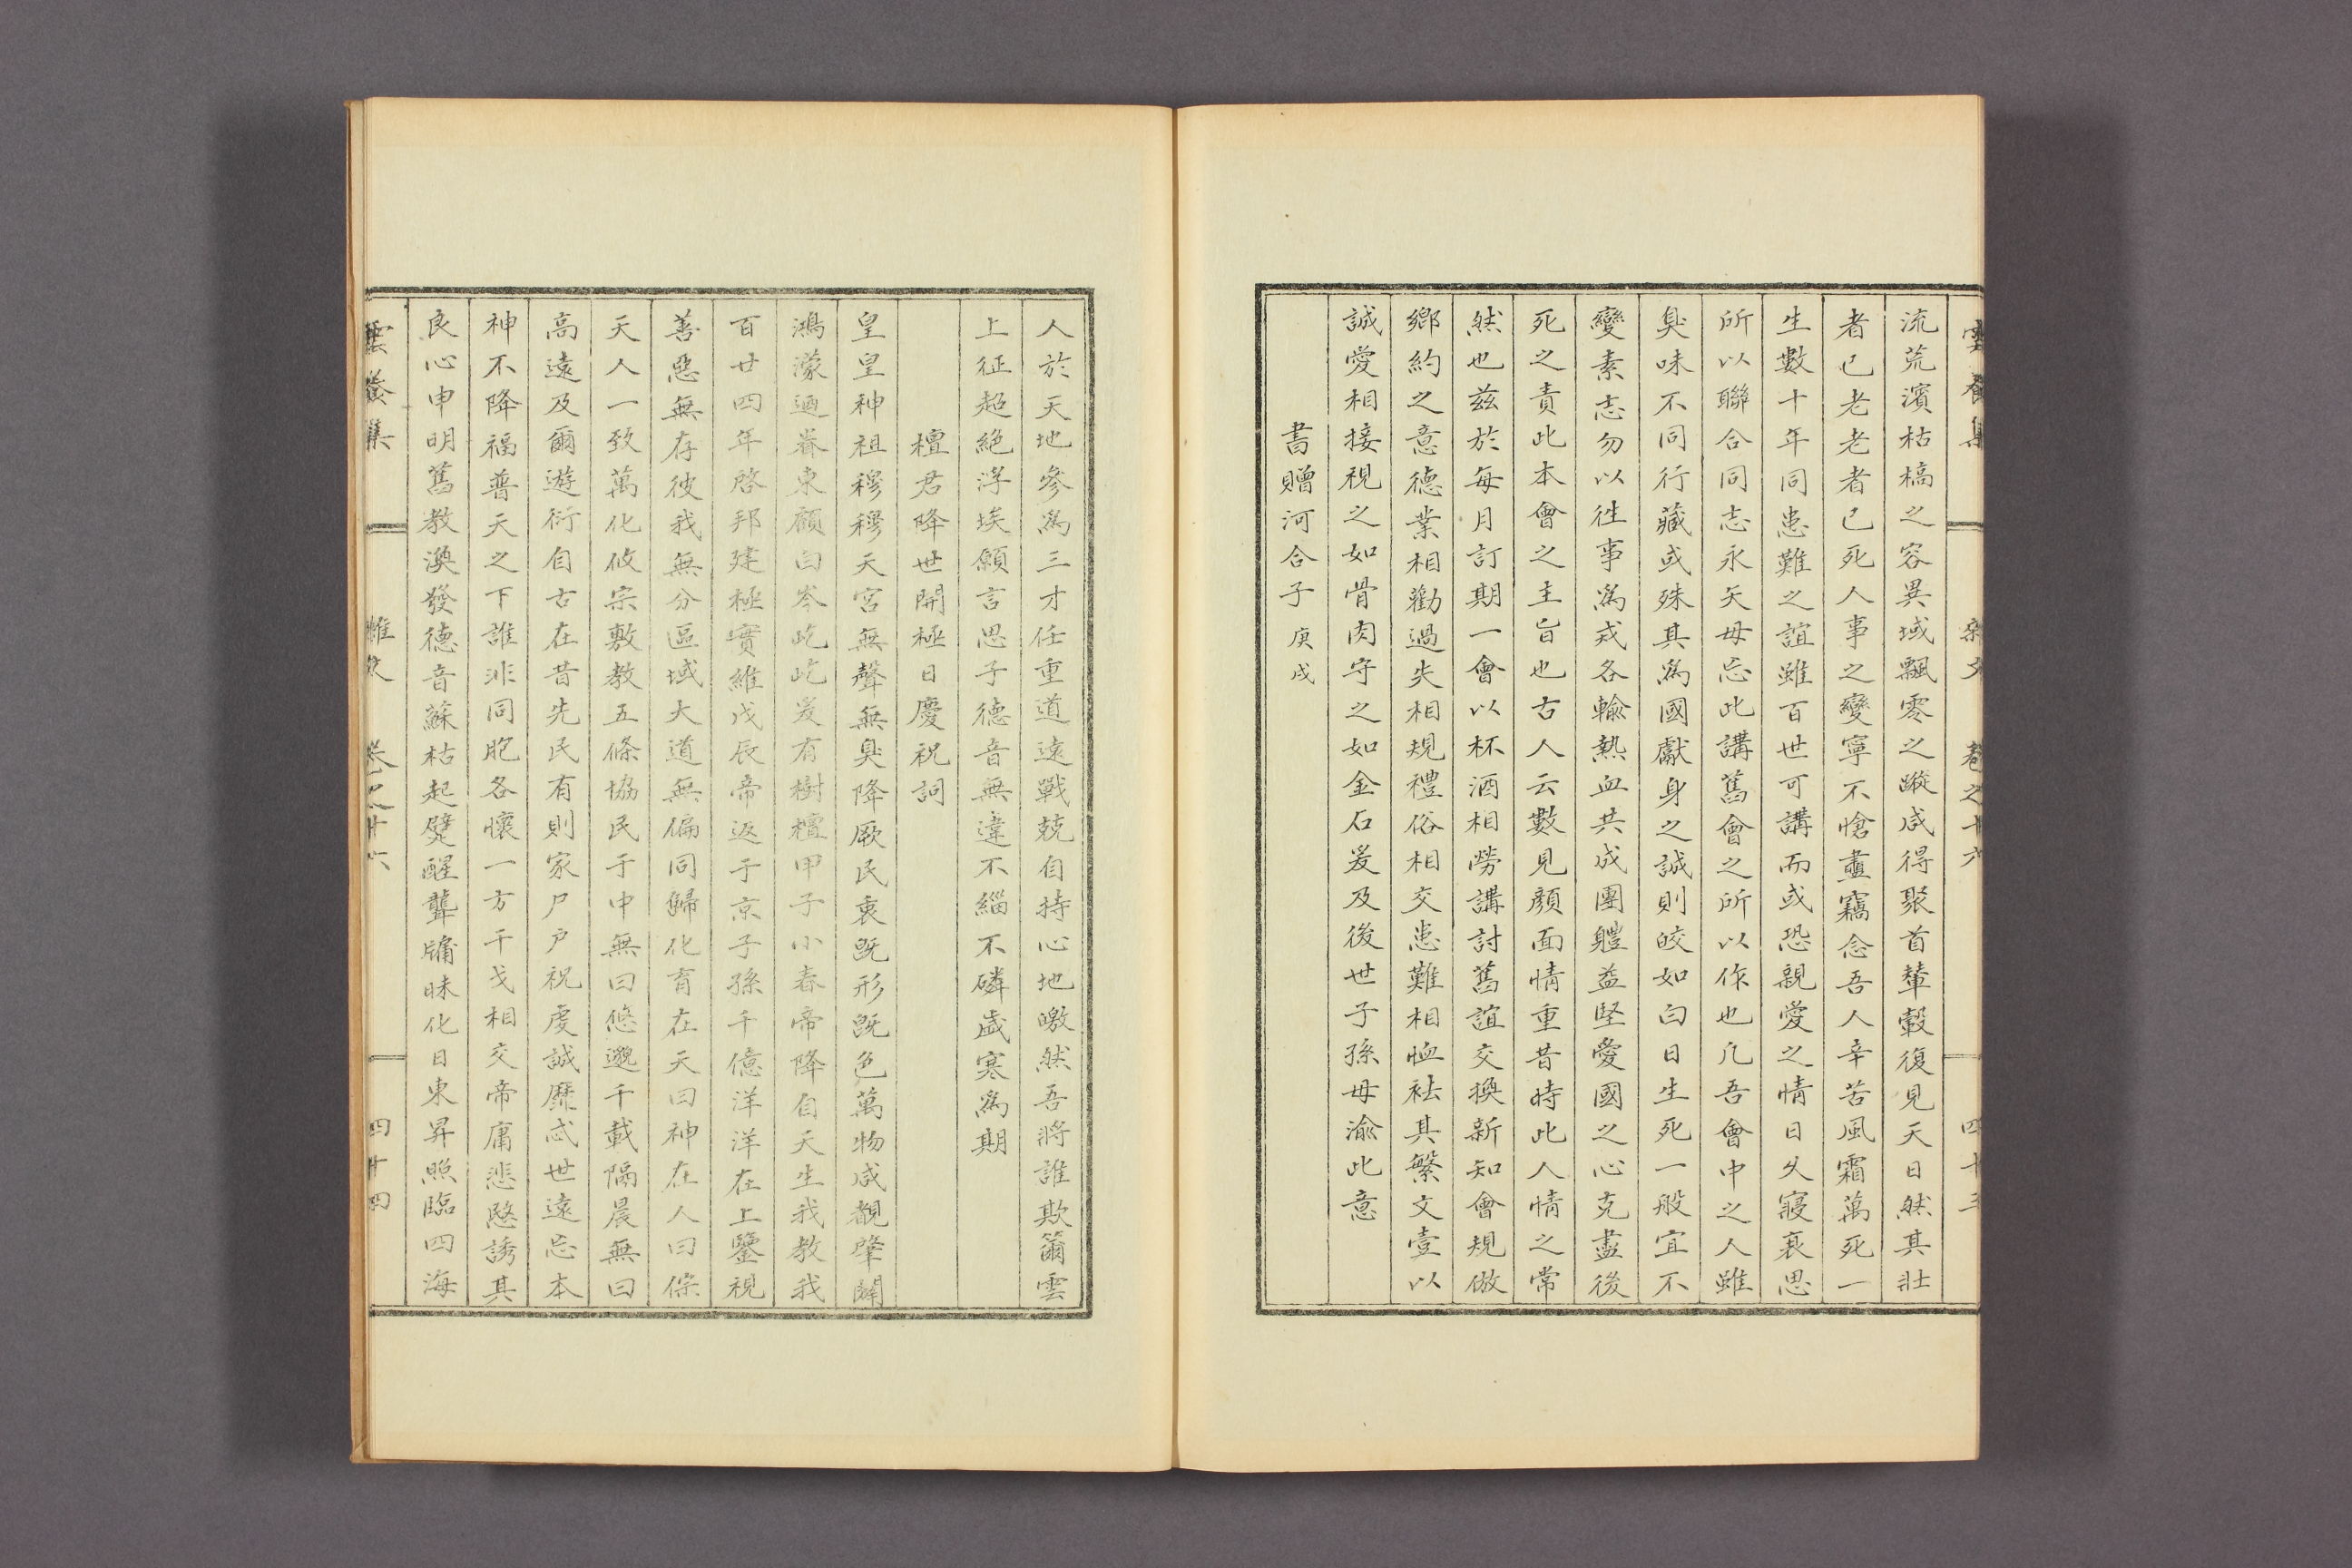 雲養集 雜文 卷之十六 四十三
流荒濱枯槁之容異域飄零之蹤咸得聚首輦轂復見天日然其壯
者已老老者已死人事之變寧不愴盡竊念吾人辛苦風霜萬死一
生數十年同患難之誼雖百世可講而或恐親愛之情日久寢衰思
所以聯合同志永矢毋忘此講舊會之所以作也凡吾會中之人雖
臭味不同行藏或殊其爲國獻身之誠則皎如白日生死一般宜不
變素志勿以徃事爲戎各輸熱血共成團軆益堅愛國之心克盡後
死之責此本會之主旨也古人云數見顏面情重昔時此人情之常
然也茲於每月訂期一會以杯酒相勞講討舊誼交換新知會規倣
鄉約之意德業相勸過失相規禮俗相交患難相恤袪其繁文壹以
誠愛相接視之如骨肉守之如金石爰及後世子孫毋渝此意
書贈河合子 庚戌
人於天地參爲三才任重道遠戰兢自持心地皦然吾將誰欺籋雲
上征超絶浮埃願言思子德音無違不緇不磷歲寒爲期
檀君降世開極日慶祝詞
皇皇神祖穆穆天宮無聲無臭降厥民衷旣形旣色萬物咸覩肇闢
鴻濛迺眷東顧白岑屹屹爰有樹檀甲子小春帝降自天生我敎我
百廿四年啓邦建極實維戊辰帝返于京子孫千億洋洋在上鑒視
善惡無存彼我無分區域大道無偏同歸化育在天曰神在人曰倧
天人一致萬化攸宗敷敎五條協民于中無曰悠邈千載隔晨無曰
高遠及爾遊衍自古在昔先民有則家尸戶祝虔誠靡忒世遠忘本
神不降福普天之下誰非同胞各懷一方干戈相交帝庸悲愍誘其
良心申明舊敎渙發德音蘇枯起躄醒聾牖昧化日東昇照臨四海
雲養集 雜文 卷之十六 四十四